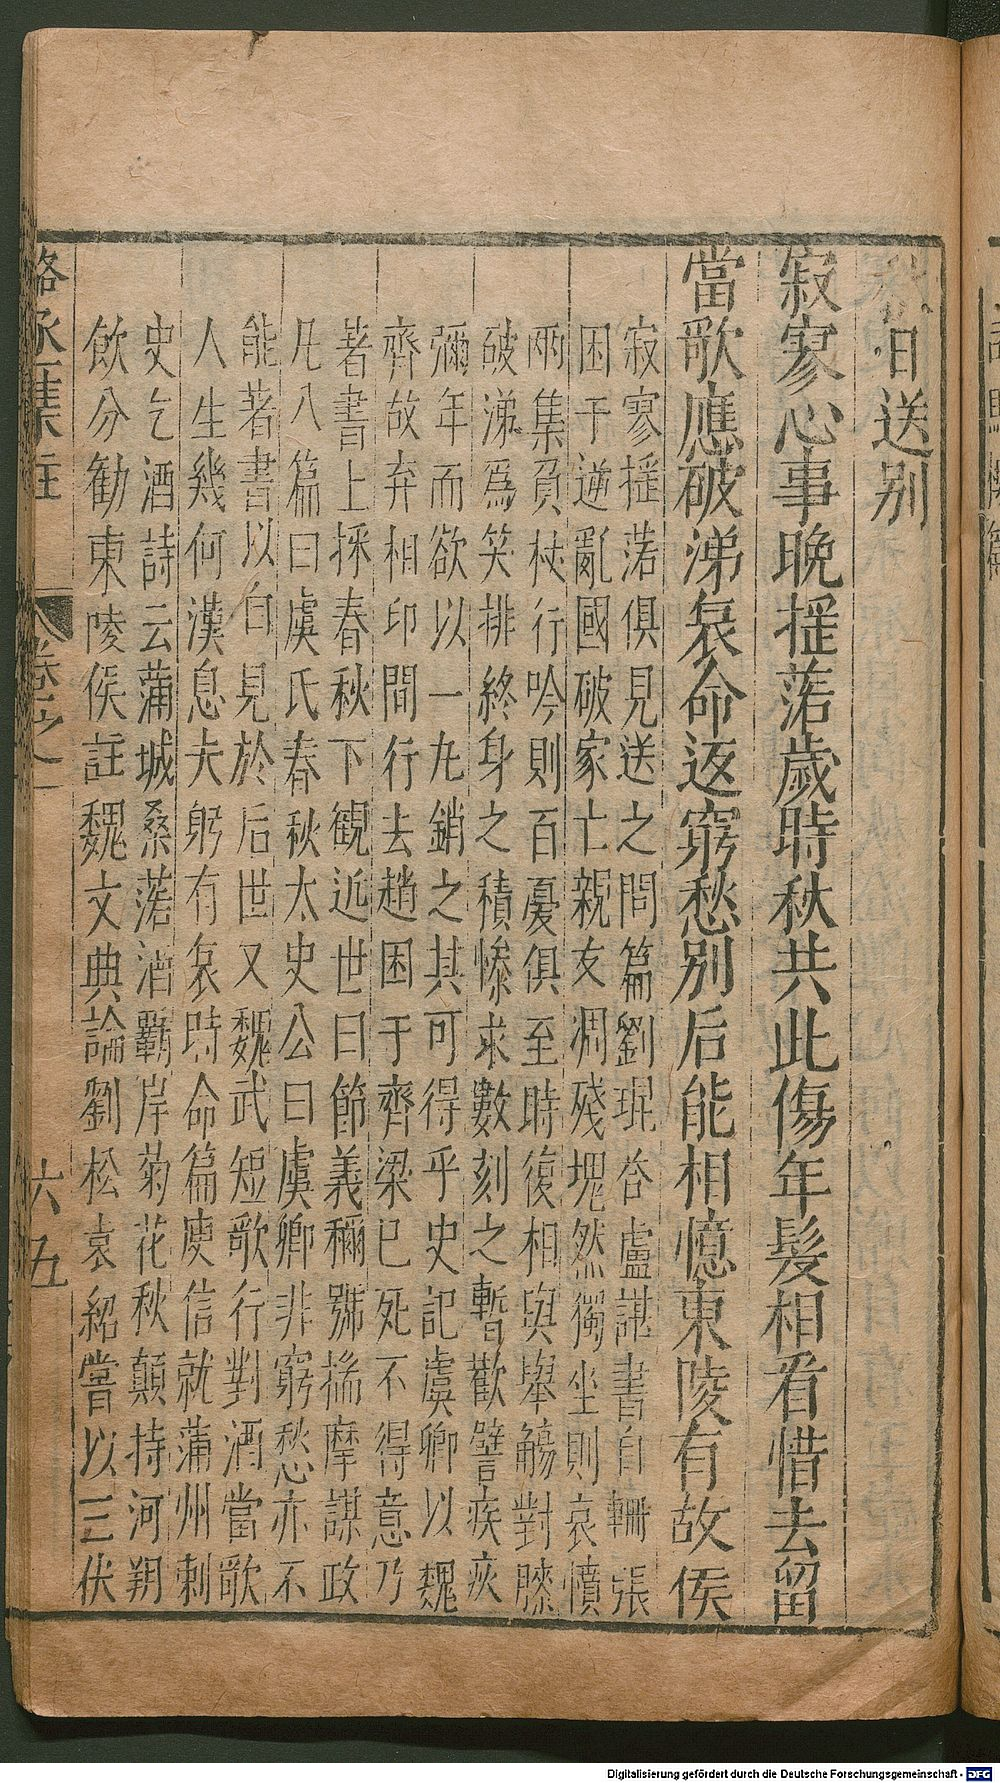 秋日送别
寂寥心事晚揺落歲時秋共此傷年髮相看惜去留
當歌應破涕哀命返窮愁别后能相憶東陵有故侯
寂寥揺落俱見送之問篇劉琨荅盧諶書自輈張
困于逆亂國破家亡親友凋殘塊然獨坐則哀憤
兩集負杖行吟則百憂俱至時復相與舉觴對膝
破涕爲笑排終身之積慘求數刻之暫歡譬疾疢
彌年而欲以一丸銷之其可得乎史記虞卿以魏
齊故弃相印間行去趙困于齊梁已死不得意乃
著書上採春秋下觀近世曰節義稱號揣摩謀政
凡八篇曰虞氏春秋太史公曰虞卿非窮愁亦不
能著書以自見於后世又魏武短歌行對酒當歌
人生幾何漢息夫躬有哀時命篇庾信就蒲州刺
史乞酒詩云蒲城桑落酒灞岸菊花秋願持河朔
飲分勧東陵侯註魏文典論劉松袁紹嘗以三伏
駱丞集註
卷之一
六五
Digitalisierung gefördert durch die Deutsche Forschungsgemeinschaft - DFG